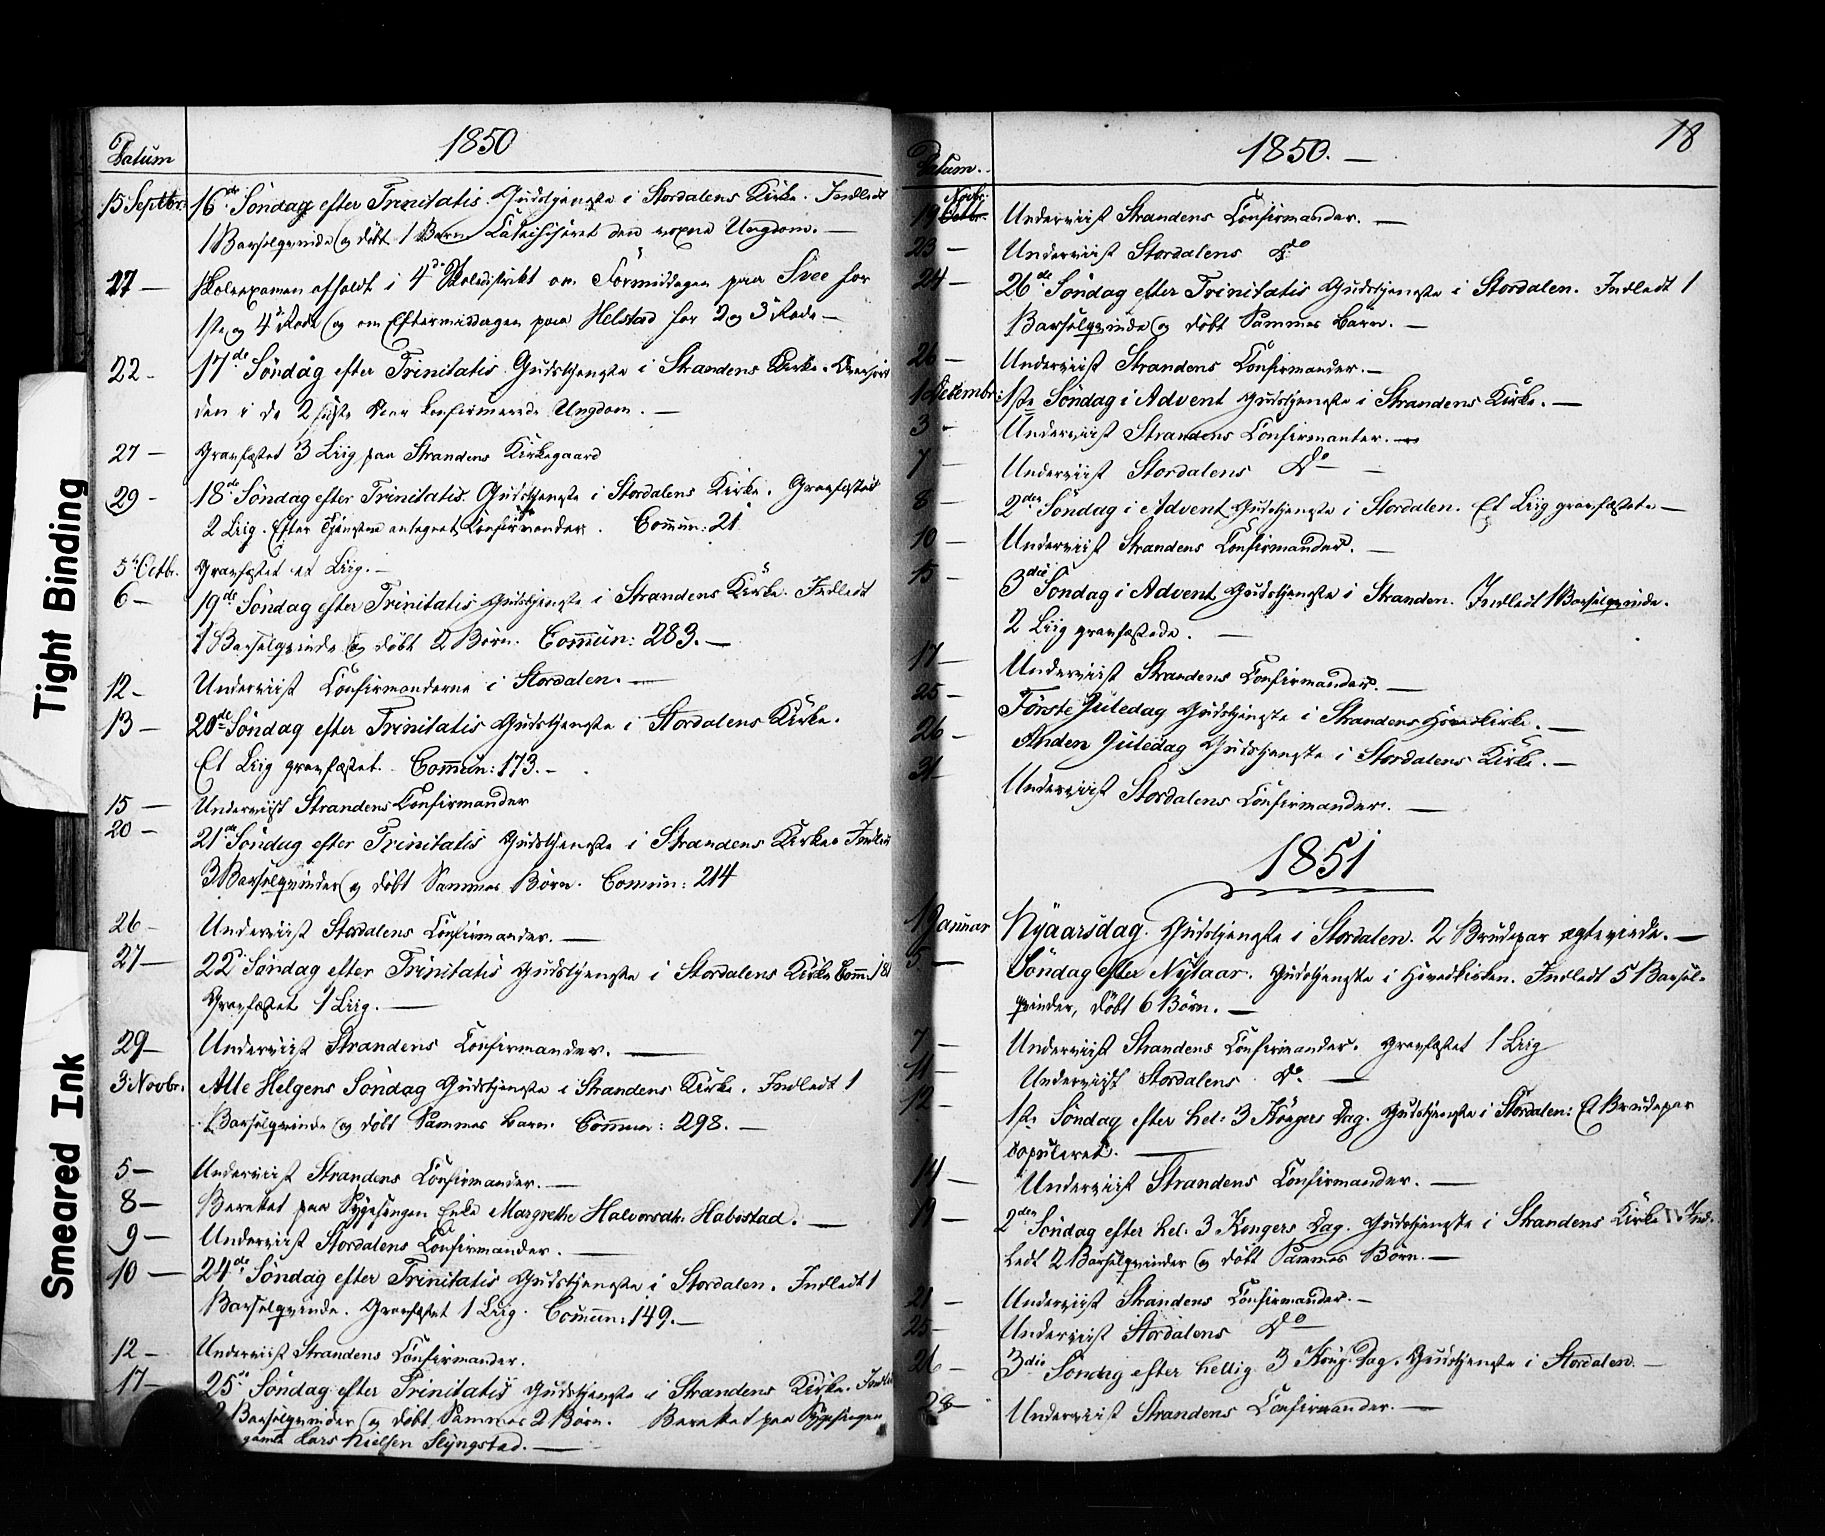 Datum 1850
15 Septbr. 16de Söndag efter Trinitatis. Gudstjeneste i Stordalens Kirke. Indledt
1 Barselqvinde og döbt 1 Barn Catechiseret den voxne Ungdom. —
17 — Skoleexamen afholdt i 4de Skoledistrikt om Formiddagen paa Svee for
1ste og 4de Rode og om Eftermiddagen paa Helstad for 2 og 3 Rode —
22 - 17de Söndag efter Trinitatis. Gudstjeneste i Strandens Kirke.
den i de 2 sidste Aar Confirmerede Ungdom. —
27 — Gravfæstet 3 Liig paa Strandens Kirkegaard
29 - 18de Söndag efter Trinitatis. Gudstjeneste i Stordalens Kirke. Gravfæstet
2 Liig. Efter Tjenesten antegnet Confirmander. Com̄un: 21
5te Octbr. Gravfæstet et Liig. —
6 — 19de Söndag efter Trinitatis Gudstjeneste i Strandens Kirke. Indledt
1 Barselqvinde og döbt 2 Börn. Com̄un: 283. —
12 - Underviist Confirmanderne i Stordalen. —
13 — 20de Söndag efter Trinitatis Gudstjeneste i Stordalens Kirke.
Et Liig gravfæstet. Com̄un: 173. —
15 — Underviist Strandens Confirmander
20 - 21de Söndag efter Trinitatis Gudstjeneste i Strandens Kirke.
3 Barselqvinder og döbt Sammes Börn. Comun: 214
26 - Underviist Stordalens Confirmander. —
27 — 22de Söndag efter Trinitatis Gudstjeneste i Stordalens Kirke Com̄:
Gravfæstet 1 Liig. —
29 — Underviist Strandens Confirmander. —
3 Novbr. Alle Helgens Söndag Gudstjeneste i Strandens Kirke. Indledt 1
Barselqvinde og döbt Sammes Barn. Com̄un: 298. —
5 — Underviist Strandens Confirmander. —
8 — Berettet paa Sygesengen Enke Margrethe Halvorsdtr. Habostad. —
9 — Underviist Stordalens Confirmander. —
10 — 24de Söndag efter Trinitatis Gudstjeneste i Stordalen. Indledt 1
Barselqvinde. Gravfæstet 1 Liig. Com̄un: 149. —
12 — Underviist Strandens Confirmander.
17 — 25de Söndag efter Trinitatis Gudstjeneste i Strandens Kirke.
2 Barselqvinder og döbt Sammes 2 Börn. Berettet paa Sygesengen
gamle Lars Nielsen Slyngstad. —
Datum. 1850. — 18
19 Novbr. Underviist Strandens Confirmander. —
23 — Underviist Stordalens Do
24 — 26de Söndag efter Trinitatis Gudstjeneste i Stordalen. Indledt 1
Barselqvinde og döbt Sammes Barn. —
26 — Underviist Strandens Confirmander. —
1 Decembr: 1ste Söndag i Advent Gudstjeneste i Strandens Kirke. —
3 - Underviist Strandens Confirmanter. —
7 — Underviist Stordalens Do —
8 — 2den Söndag i Advent Gudstjeneste i Stordalen. Et Liig gravfæstet —
10 — Underviist Strandens Confirmander. —
15 — 3die Söndag i Advent Gudstjeneste i Stranden. Indledt 1 Barselqvinde.
2 Liig gravfæstede. —
17 — Underviist Strandens Confirmander. —
25 — Förste Juledag Gudstjeneste i Strandens Hovedkirke. —
26 - Anden Juledag Gudstjeneste i Stordalens Kirke. —
31 Underviist Stordalens Confirmander. —
1851
1 Januar Nyaarsdag. Gudstjeneste i Stordalen. 2 Brudepar ægteviede. —
5 — Söndag efter Nytaar. Gudstjeneste i Hovedkirken. Indledt 5 Barsel-
qvinder, döbt 6 Börn. —
7 — Underviist Strandens Confirmander. Gravfæstet 1 Liig
11 — Underviist Stordalens Do. —
12 — 1ste Söndag efter hel: 3 Kongers Dag. Gudstjeneste i Stordalen: Et Brudepar
copuleret. —
14 — Underviist Strandens Confirmander. —
19 — 2den Söndag efter hel: 3 Kongers Dag. Gudstjeneste i Strandens Kirke. Ind-
ledt 2 Barselqvinder og döbt Sammes Börn. —
21 — Underviist Strandens Confirmander. —
25 — Underviist Stordalens Do —
26 — 3die Söndag efter hellig 3 Kong. Dag. Gudstjeneste i Stordalen. —
28 — Underviist Strandens Confirmander. —
Tight Binding
Smeared Ink